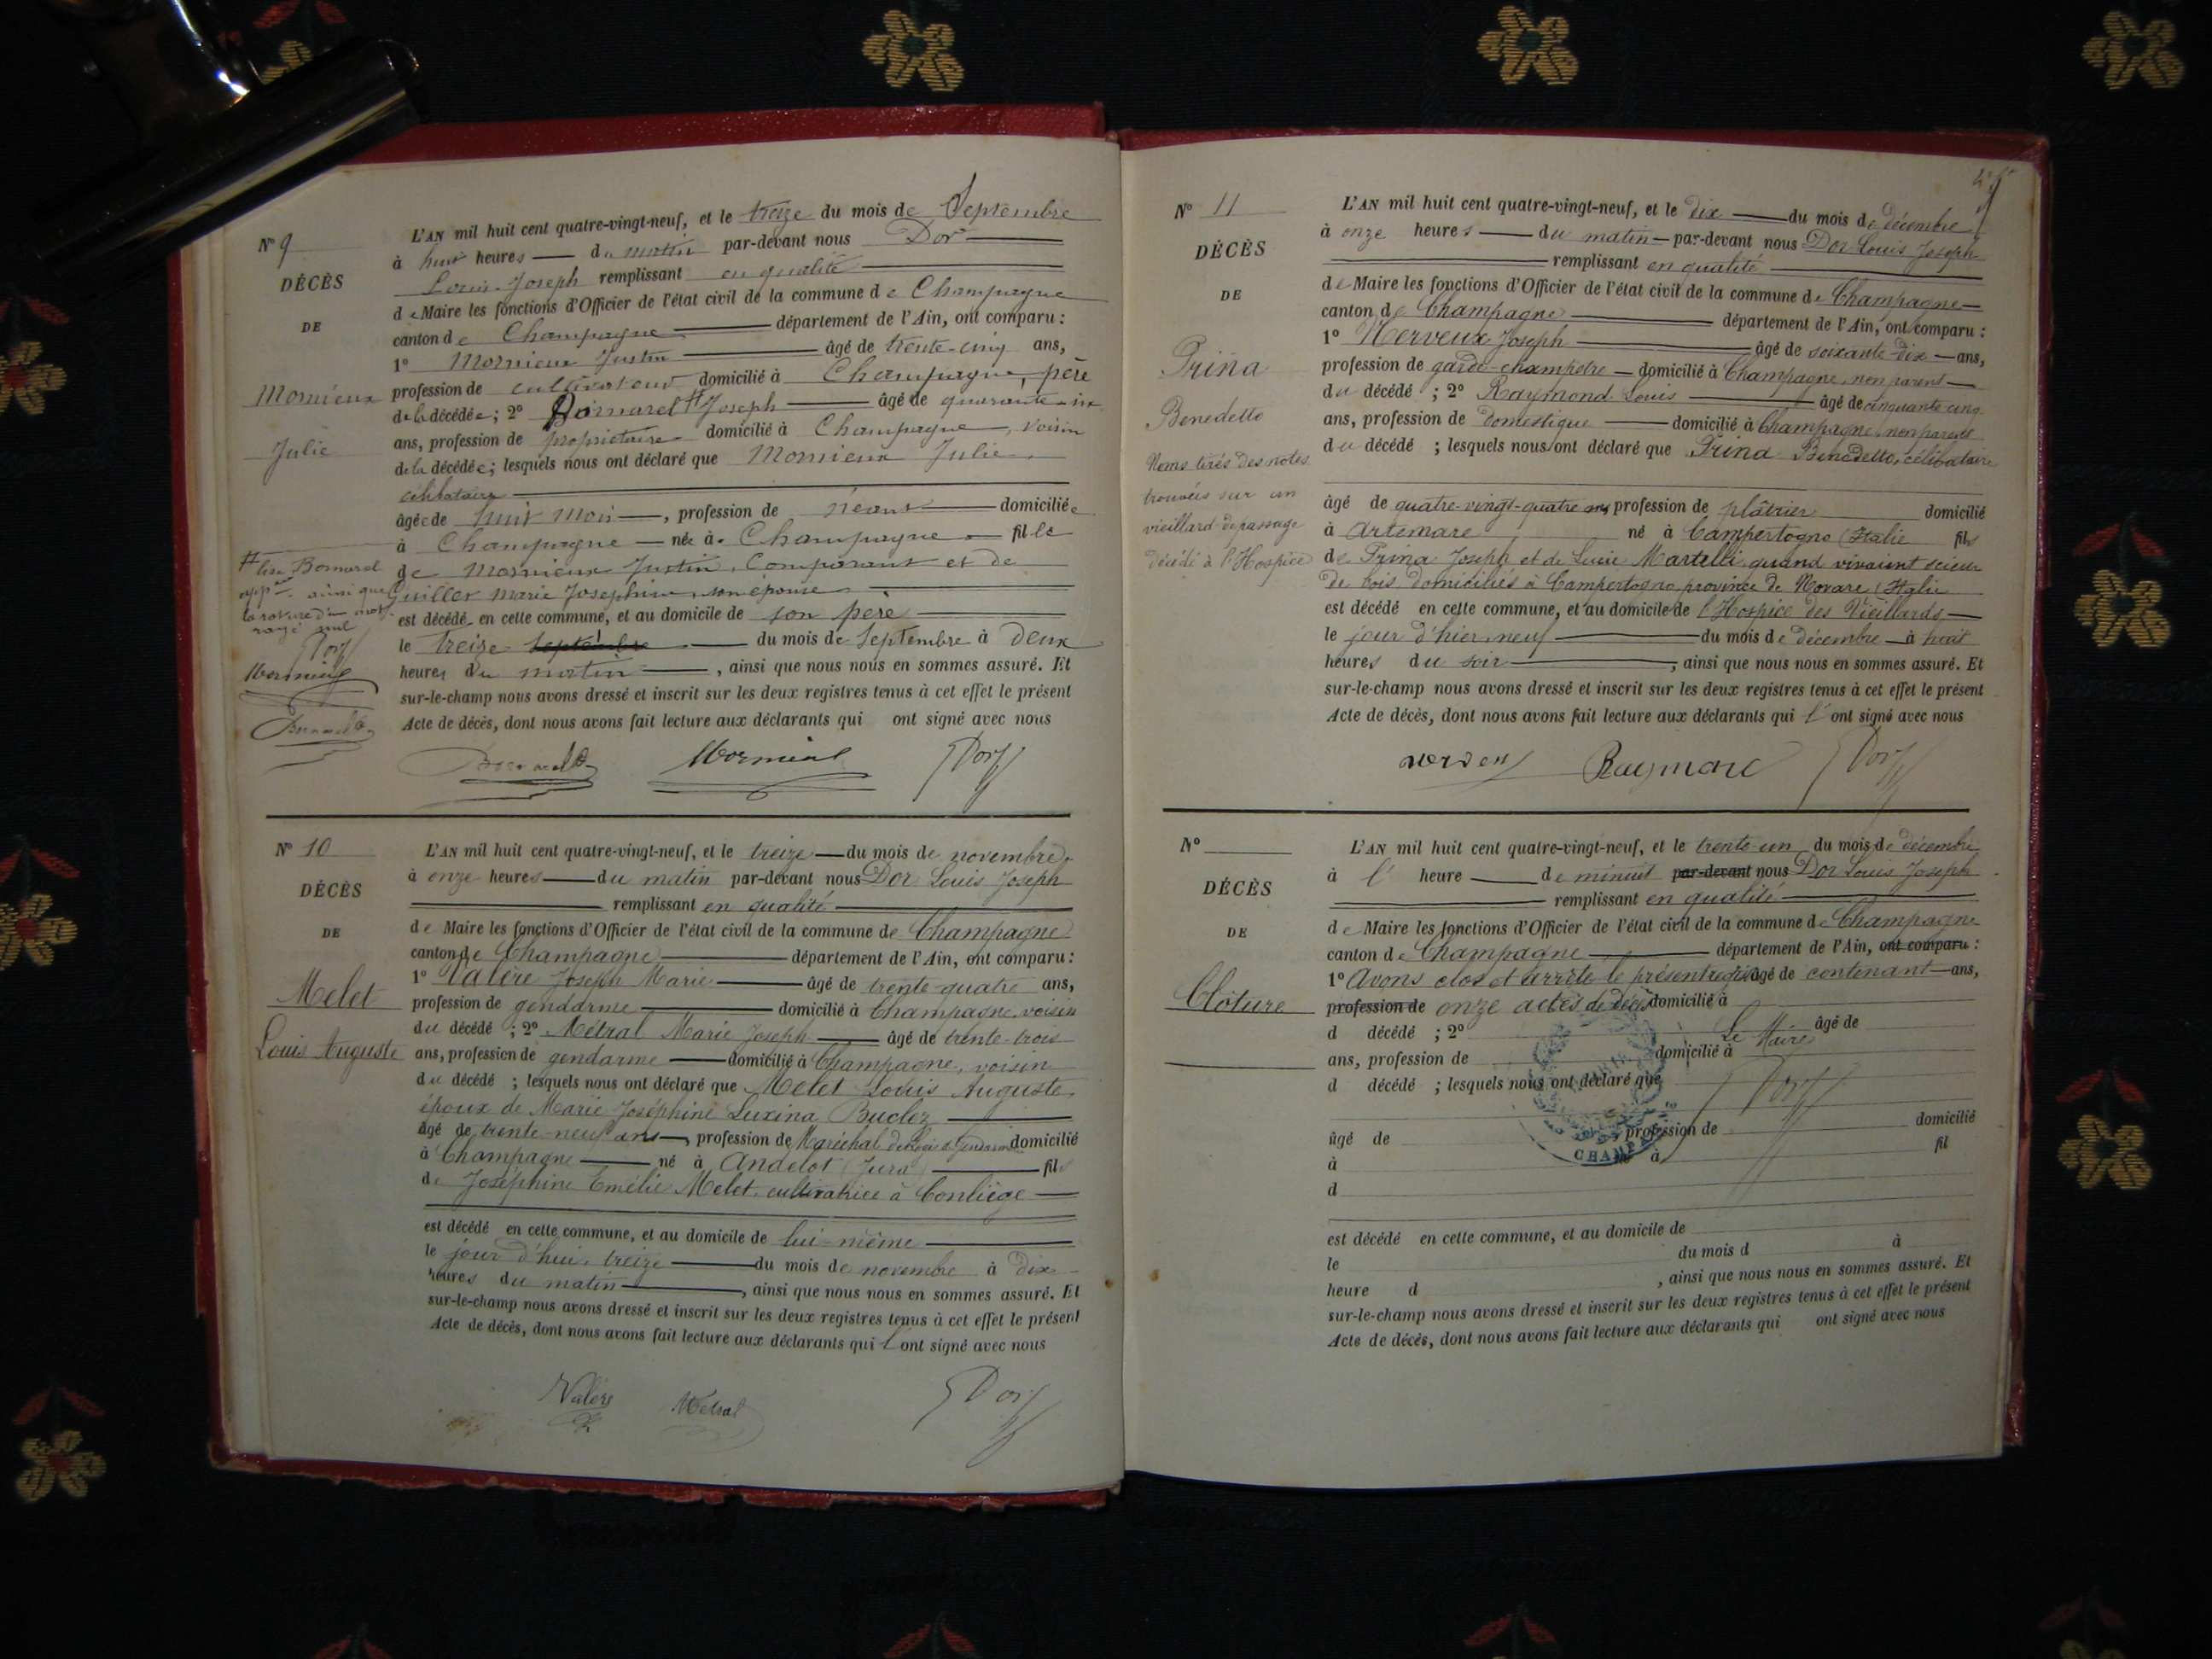 N° 9
DÉCÈS
DE
Mornieux
Julie
# lire Bornarel
app.on ainsi que
la rature d'un mot
rayé nul
Dor
Mornieux
L'AN mil huit cent quatre-vingt-neuf, et le treize du mois de Septembre
à huit heures du matin par-devant nous Dor
Louis Joseph remplissant en qualité
de Maire les fonctions d'Officier de l'état civil de la commune de Champagne
canton de Champagne département de l'Ain, ont comparu :
1° Mornieux Justin âgé de trente-cinq ans,
profession de cultivateur domicilié à Champagne, père
de la décédée ; 2° # Joseph âgé de quarante
ans, profession de propriétaire domicilié à Champagne, voisin
de la décédée ; lesquels nous ont déclaré que Mornieux Julie
célibataire
âgée de huit mois, profession de néant domiciliée
à Champagne née à Champagne fille
de Mornieux Justin, Comparant et de
Guiller Marie Josephine, son épouse
est décédée en cette commune, et au domicile de son père
le treize septembre du mois de Septembre à deux
heures du matin, ainsi que nous nous en sommes assuré. Et
sur-le-champ nous avons dressé et inscrit sur les deux registres tenus à cet effet le présent
Acte de décès, dont nous avons fait lecture aux déclarants qui ont signé avec nous
Mornieux Dor
N° 10
DÉCÈS
DE
Melet
Louis Auguste
L'AN mil huit cent quatre-vingt-neuf, et le treize du mois de novembre,
à onze heures du matin par-devant nous Dor Louis Joseph
remplissant en qualité
de Maire les fonctions d'Officier de l'état civil de la commune de Champagne
canton de Champagne département de l'Ain, ont comparu :
1° Valère Joseph Marie âgé de trente-quatre ans,
profession de gendarme domicilié à Champagne, voisin
du décédé ; 2° Métral Marie Joseph âgé de trente-trois
ans, profession de gendarme domicilié à Champagne, voisin
du décédé ; lesquels nous ont déclaré que Melet Louis Auguste,
époux de Marie Joséphine Luxina Buclez
âgé de trente-neuf ans, profession de Maréchal des logis de gendarmerie domicilié
à Champagne né à Andelot (Jura) fils
de Joséphine Emélie Melet, cultivatrice à Conliège
est décédé en cette commune, et au domicile de lui-même
le jour d'hui, treize du mois de novembre à dix
heures du matin, ainsi que nous nous en sommes assuré. Et
sur-le-champ nous avons dressé et inscrit sur les deux registres tenus à cet effet le présent
Acte de décès, dont nous avons fait lecture aux déclarants qui l'ont signé avec nous
Valère Metral Dor
N° 11
DÉCÈS
DE
Prina
Benedetto
Noms tirés des notes
trouvées sur un
vieillard de passage
décédé à l'Hospice
L'AN mil huit cent quatre-vingt-neuf, et le dix du mois de décembre
à onze heures du matin par-devant nous Dor Louis Joseph
remplissant en qualité
de Maire les fonctions d'Officier de l'état civil de la commune de Champagne
canton de Champagne département de l'Ain, ont comparu :
1° Nerveux Joseph âgé de soixante-dix ans,
profession de garde-champêtre domicilié à Champagne, non parent
du décédé ; 2° Raymond Louis âgé de cinquante-cinq
ans, profession de domestique domicilié à Champagne, non parent
du décédé ; lesquels nous ont déclaré que Prina Benedetto, célibataire
âgé de quatre-vingt-quatre ans profession de plâtrier domicilié
à Artemare né à Campertogno (Italie) fils
de Prina Joseph et de Lucie Martelli, quand vivaient scieur
de bois domiciliés à Campertogno province de Novare (Italie
est décédé en cette commune, et au domicile de l'Hospice des Vieillards
le jour d'hier, neuf du mois de décembre à huit
heures du soir, ainsi que nous nous en sommes assuré. Et
sur-le-champ nous avons dressé et inscrit sur les deux registres tenus à cet effet le présent
Acte de décès, dont nous avons fait lecture aux déclarants qui l'ont signé avec nous
Raymond Dor
N°
DÉCÈS
DE
Clôture
L'AN mil huit cent quatre-vingt-neuf, et le trente-un du mois de décembre
à l'heure de minuit par-devant nous Dor Louis Joseph
remplissant en qualité
de Maire les fonctions d'Officier de l'état civil de la commune de Champagne
canton de Champagne département de l'Ain, ont comparu :
1° Avons clos et arrêté le présent registre âgé de contenant ans,
profession de onze actes de décès domicilié à
d décédé ; 2° Le Maire âgé de
ans, profession de domicilié à
d décédé ; lesquels nous ont déclaré que Dor
âgé de profession de domicilié
à né à fil
d
CHAMP
est décédé en cette commune, et au domicile de
le du mois d à
heure d , ainsi que nous nous en sommes assuré. Et
sur-le-champ nous avons dressé et inscrit sur les deux registres tenus à cet effet le présent
Acte de décès, dont nous avons fait lecture aux déclarants qui ont signé avec nous